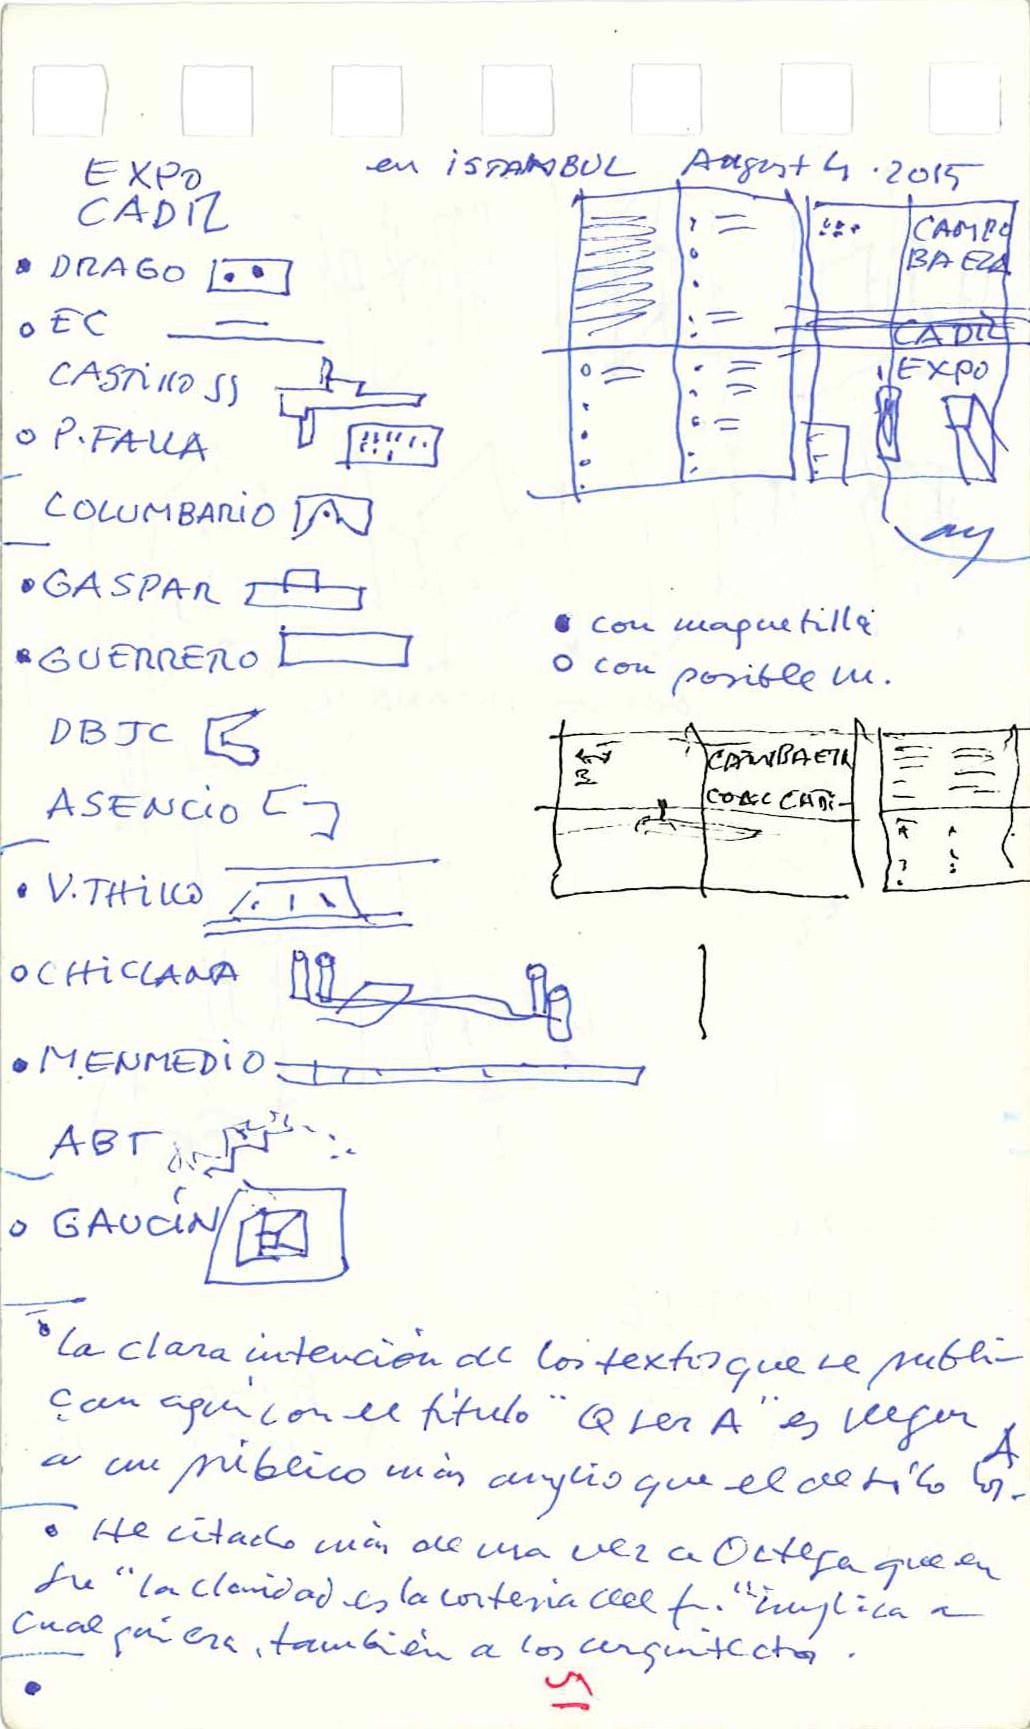 EXPO
CADIZ
en iSTAMBUL August 4. 2015
• DRAGO
o EC
CASTILLO SS
o P. FALLA
COLUMBARIO
• GASPAR
• GUERRERO
DBJC
ASENCiO
• V. THiLLO
o CHiCLANA
• M.ENMEDiO
ABT
o GAUCÍN
CAMPO
BAEZA
CADIZ
EXPO
• con maquetilla
o con posible m.
CAMBAEZA
CADI-
• La clara intención de los textos que se publi-
can aquí con el título "Q ser A" es llegar
a un público más amplio que el de sólo los As.
• He citado más de una vez a Ortega que en
su "la claridad es la cortesía del f." implica a
cualquiera, también a los arquitectos.
•
51